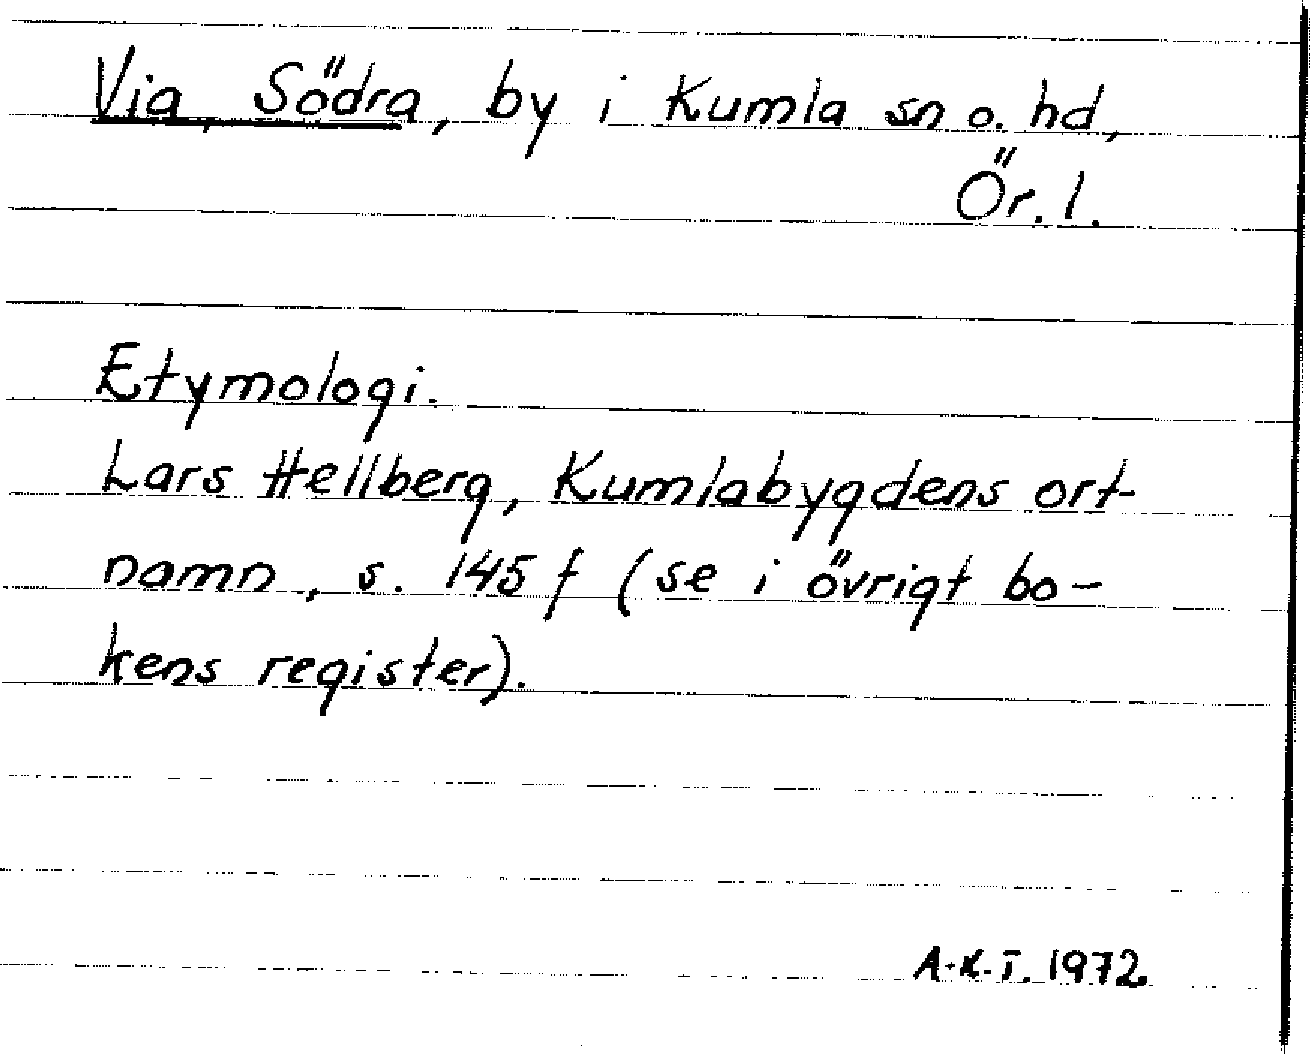 Via, Södra, by i Kumla sn o. hd,
Ör. l.
Etymologi.
Lars Hellberg, Kumlabygdens ort-
namn, s. 145 f (se i övrigt bo-
kens register).
A-K.T. 1972